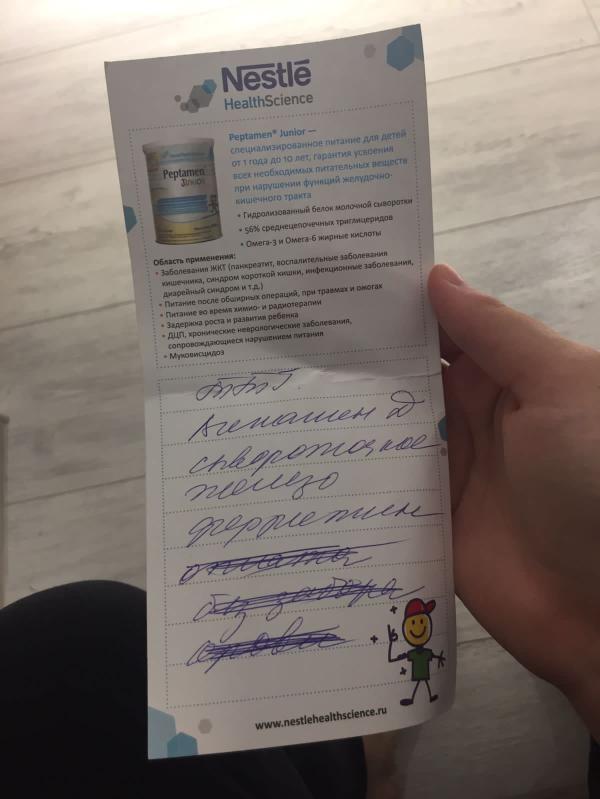 Nestlé
HealthScience
Peptamen® Junior —
специализированное питание для детей
от 1 года до 10 лет, гарантия усвоения
всех необходимых питательных веществ
при нарушении функций желудочно-
кишечного тракта
• Гидролизованный белок молочной сыворотки
• 56% среднецепочечных триглицеридов
• Омега-3 и Омега-6 жирные кислоты
Peptamen
Junior
Область применения:
• Заболевания ЖКТ (панкреатит, воспалительные заболевания
кишечника, синдром короткой кишки, инфекционные заболевания,
диарейный синдром и т.д.)
• Питание после обширных операций, при травмах и ожогах
• Питание во время химио- и радиотерапии
• Задержка роста и развития ребенка
• ДЦП, хронические неврологические заболевания,
сопровождающиеся нарушением питания
• Муковисцидоз
Д
сывороточное
железо
ферритин
оплата
без забора
крови
www.nestlehealthscience.ru